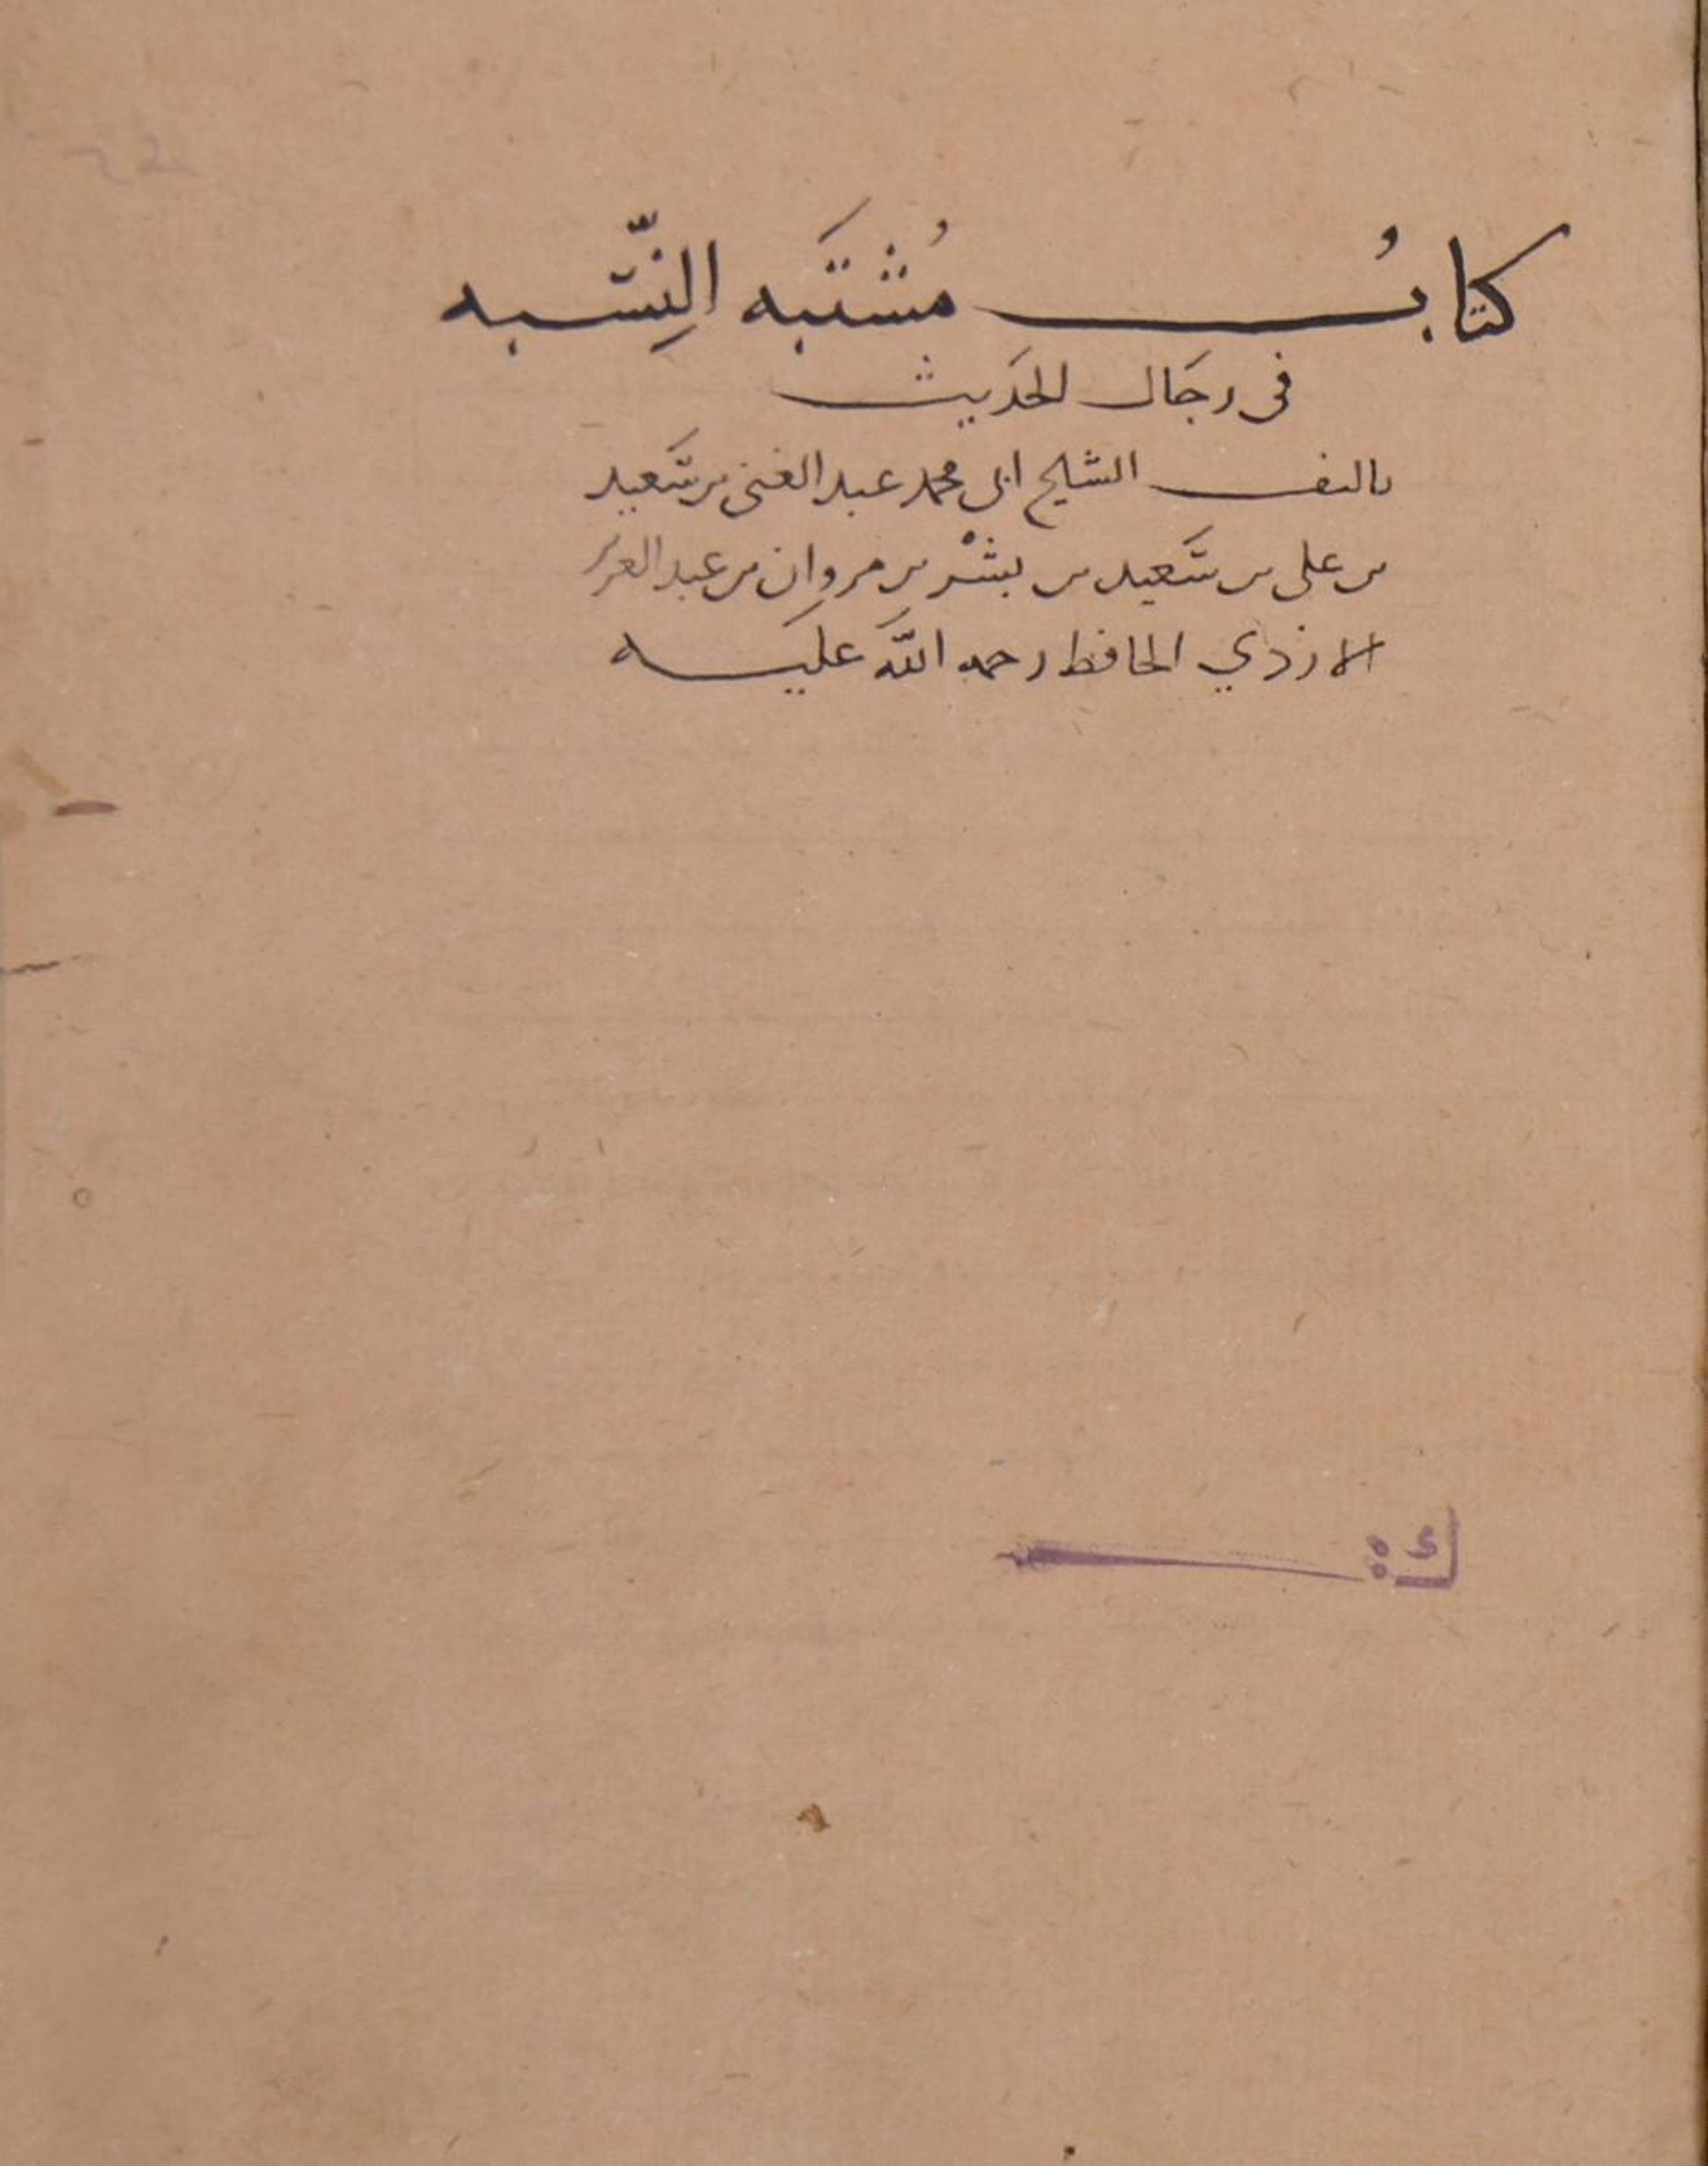 كتابُ مُشتَبَه النِّسبه
فى رجَال الحَديث
تاليف الشيخ ابى محمد عبد الغنى بن سَعيد
بن على بن سَعيد بن بشْر بن مروان بن عبد العزيز
الازدي الحافظ رحمه اللّه عليه